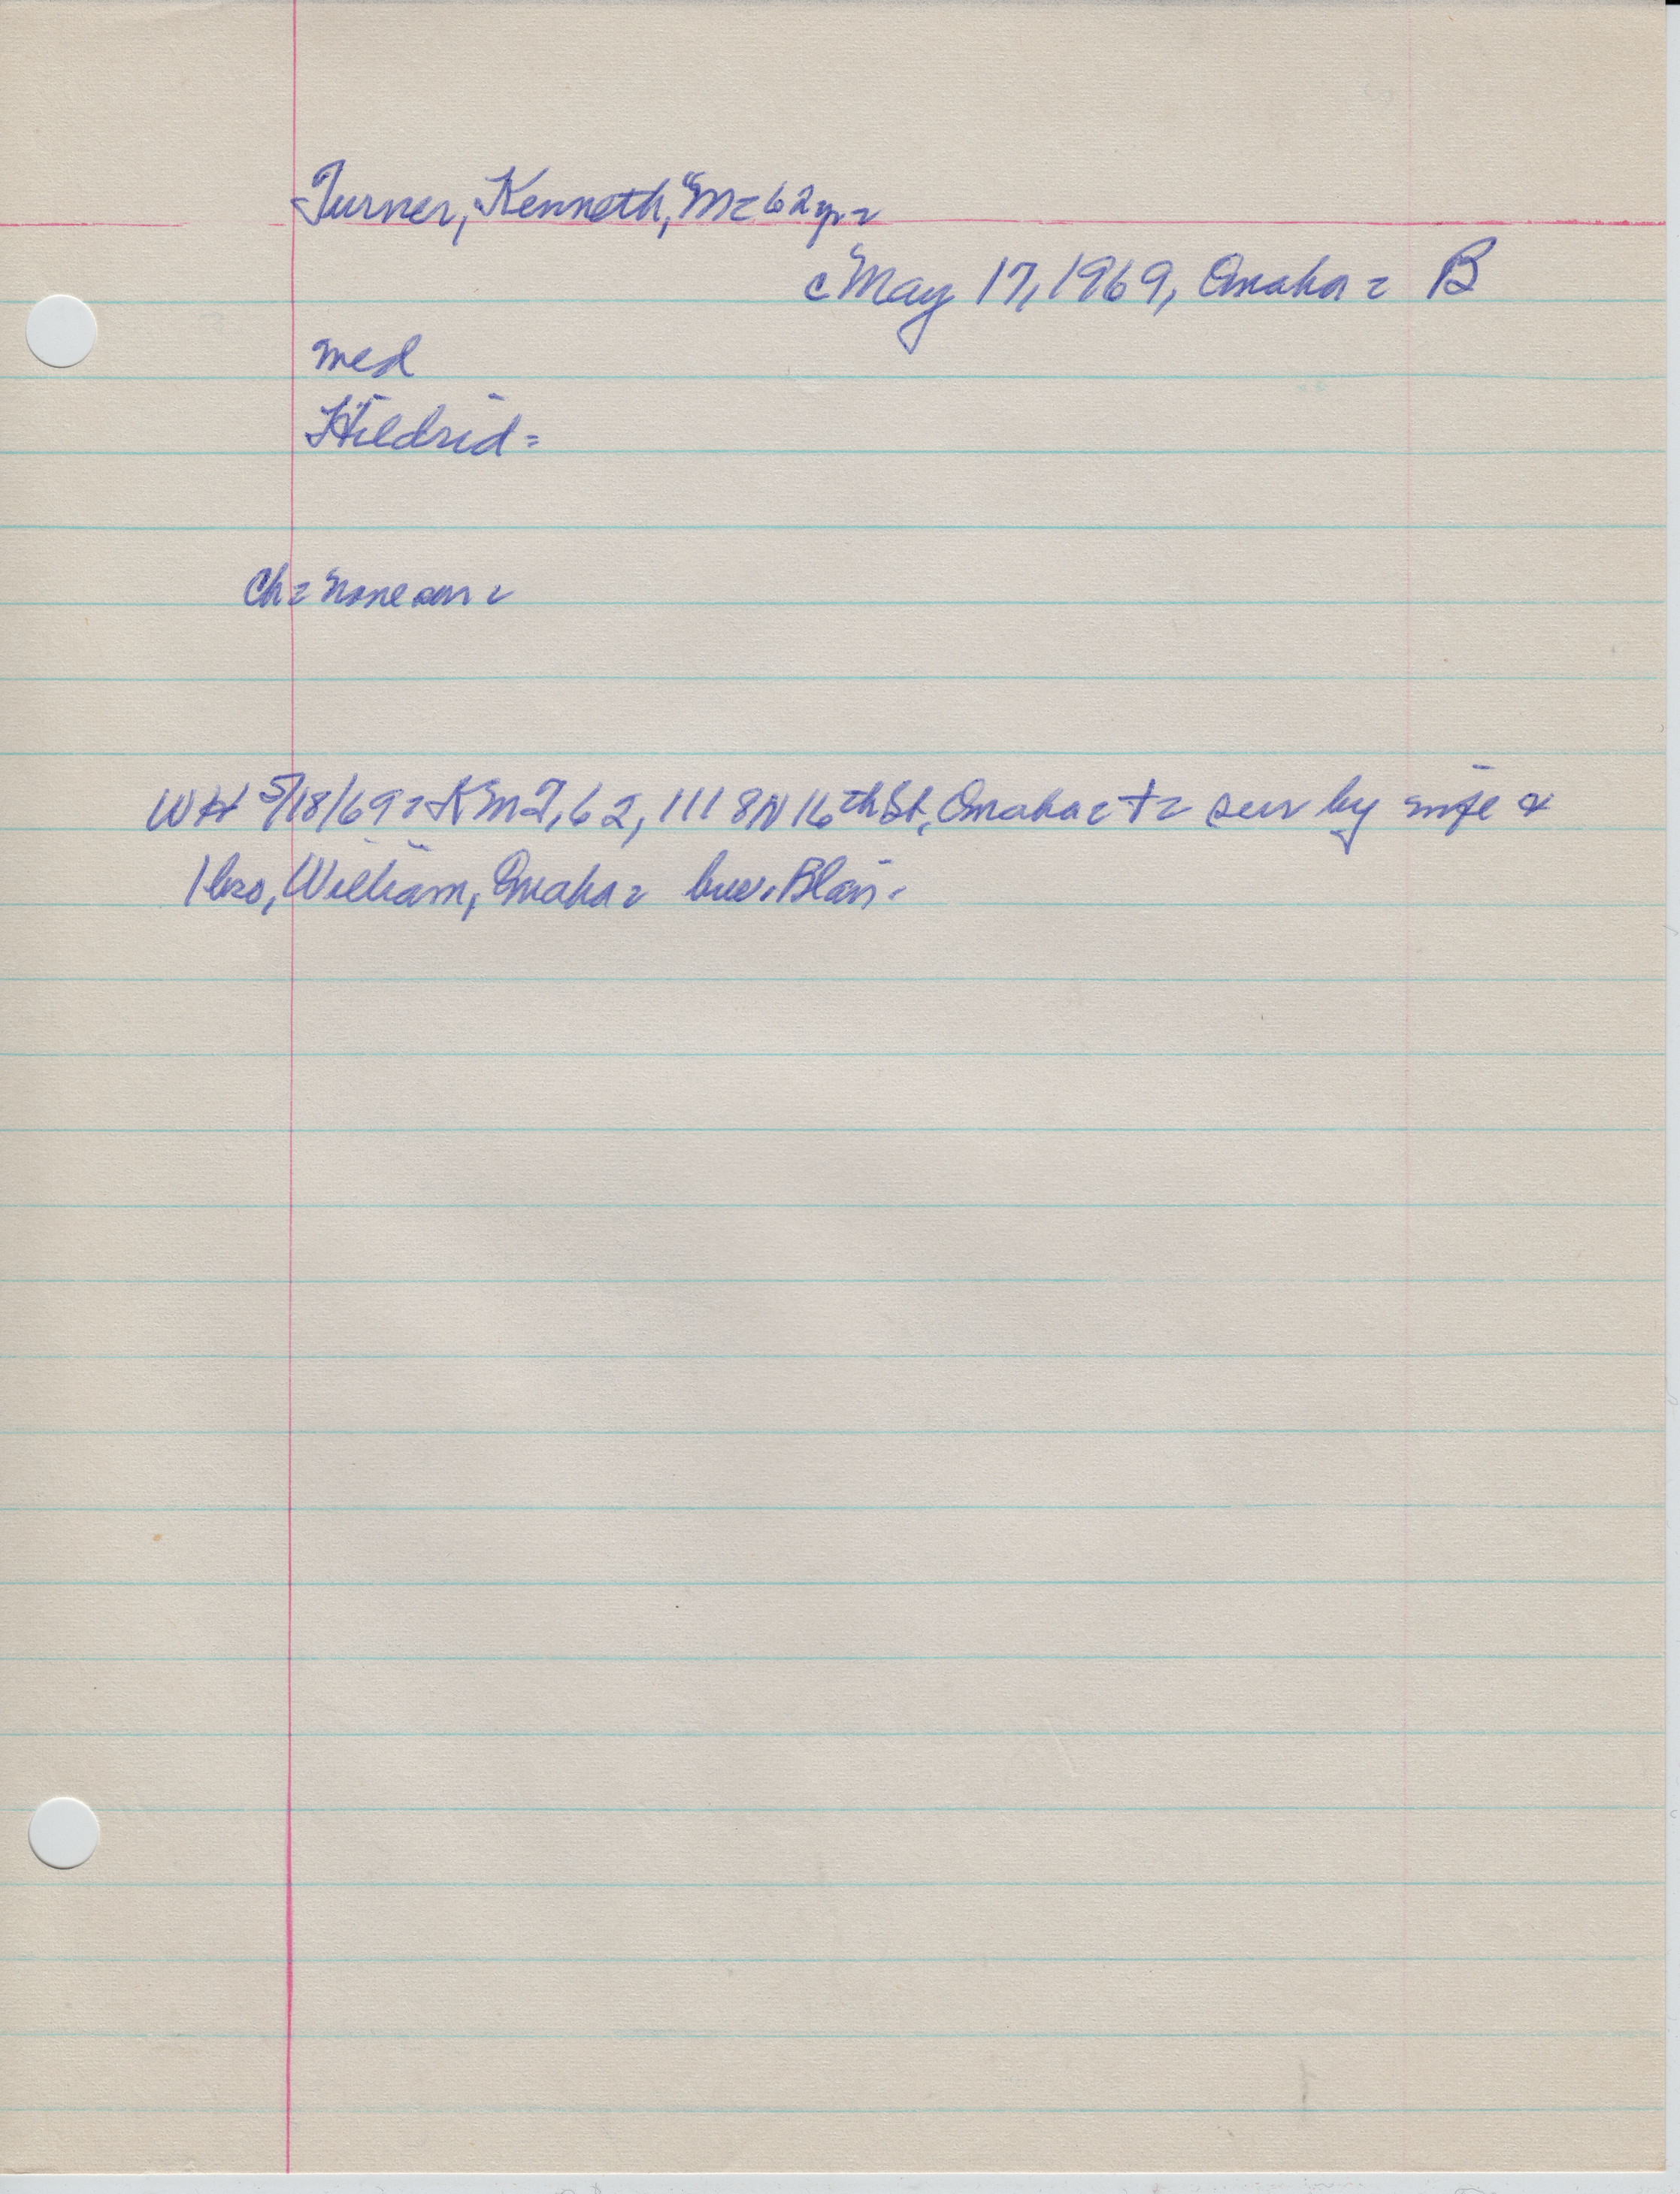 Turner, Kenneth, M = 62 yr =
May 17, 1969, Omaha = B
med
Hildrid =
Ch = None sur =
WH 5/18/69 = KMT, 62, 1118 N 16th St, Omaha = + = sur by wife &
1 bro, William, Omaha = bur. Blair.